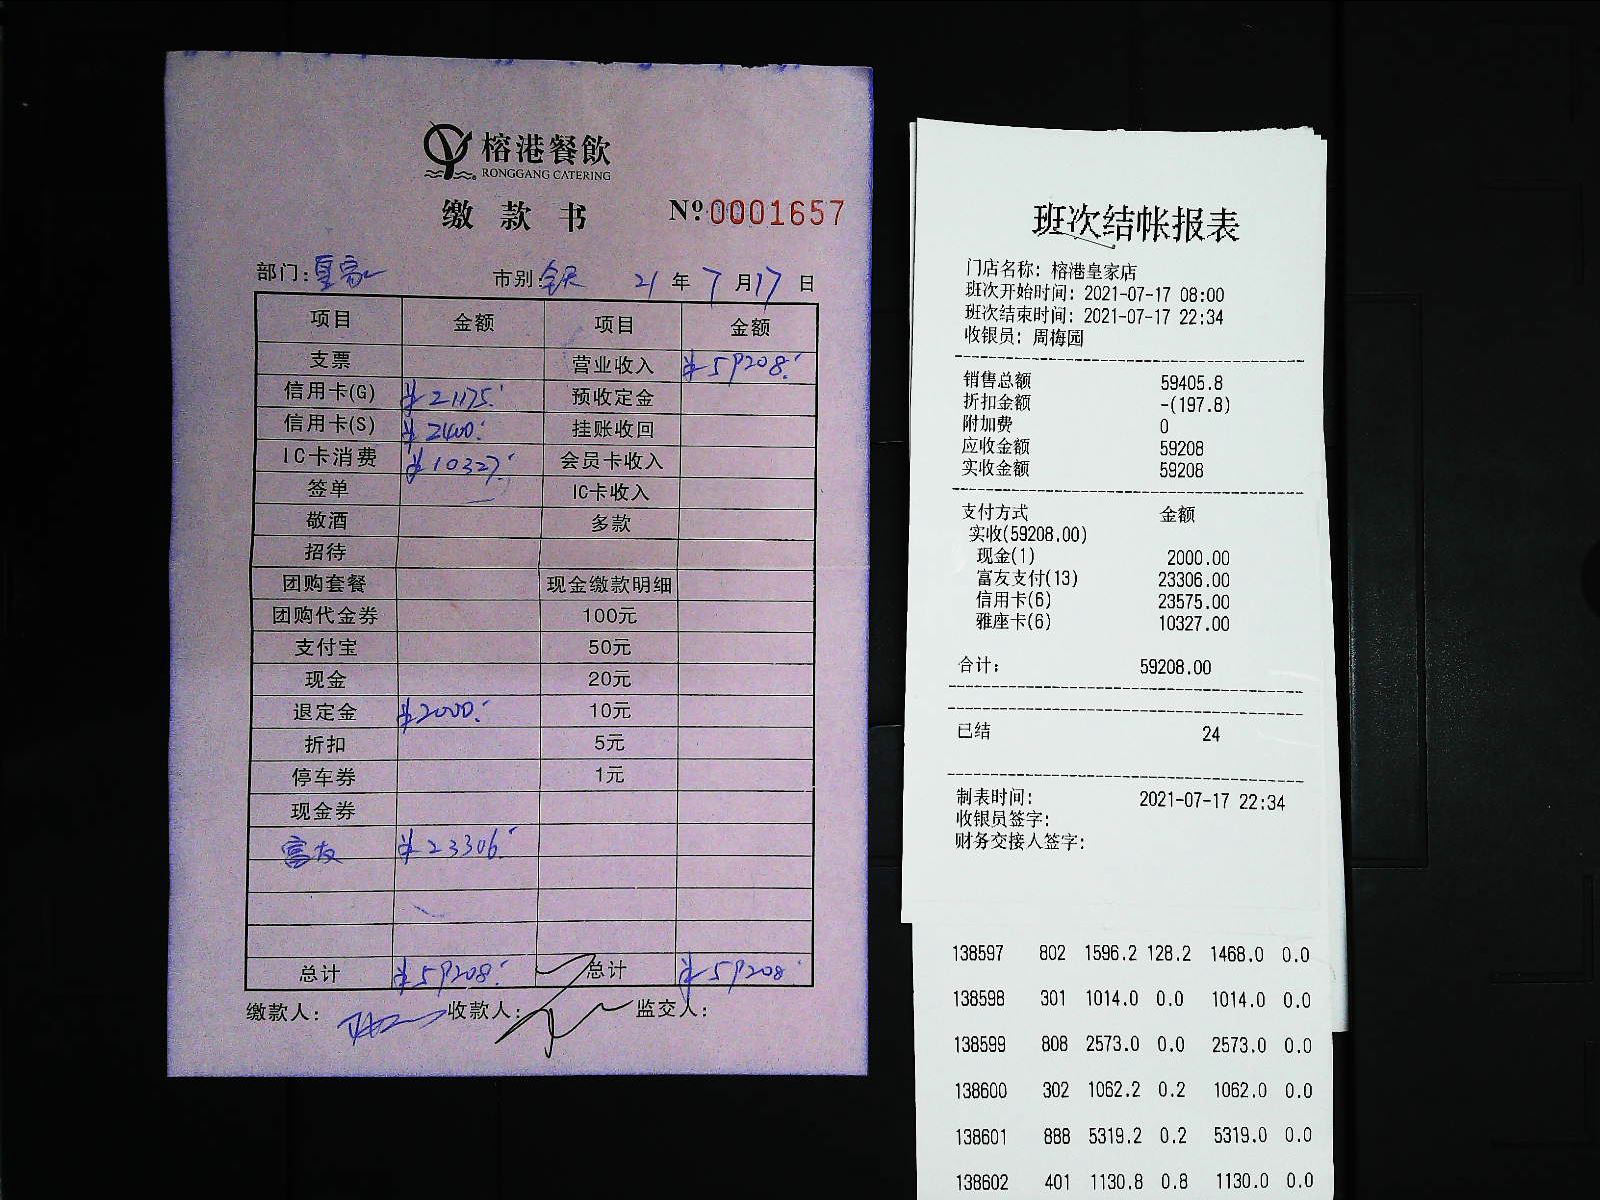 榕港餐飲
RONGGANG CATERING
缴款书 № 0001657
部门:皇家 市别:全天 21年7月17日
项目 金额 项目 金额
支票 营业收入 ¥59208.
信用卡(G) ¥21175. 预收定金
信用卡(S) ¥2400. 挂账收回
IC卡消费 ¥10327. 会员卡收入
签单 IC卡收入
敬酒 多款
招待
团购套餐 现金缴款明细
团购代金券 100元
支付宝 50元
现金 20元
退定金 ¥2000. 10元
折扣 5元
停车券 1元
现金券
富友 ¥23306.
总计 ¥59208. 总计 ¥59208
缴款人: 收款人: 监交人:
班次结帐报表
门店名称: 榕港皇家店
班次开始时间: 2021-07-17 08:00
班次结束时间: 2021-07-17 22:34
收银员: 周梅园
销售总额 59405.8
折扣金额 -(197.8)
附加费 0
应收金额 59208
实收金额 59208
支付方式 金额
实收(59208.00)
现金(1) 2000.00
富友支付(13) 23306.00
信用卡(6) 23575.00
雅座卡(6) 10327.00
合计: 59208.00
已结 24
制表时间: 2021-07-17 22:34
收银员签字:
财务交接人签字:
138597 802 1596.2 128.2 1468.0 0.0
138598 301 1014.0 0.0 1014.0 0.0
138599 808 2573.0 0.0 2573.0 0.0
138600 302 1062.2 0.2 1062.0 0.0
138601 888 5319.2 0.2 5319.0 0.0
138602 401 1130.8 0.8 1130.0 0.0